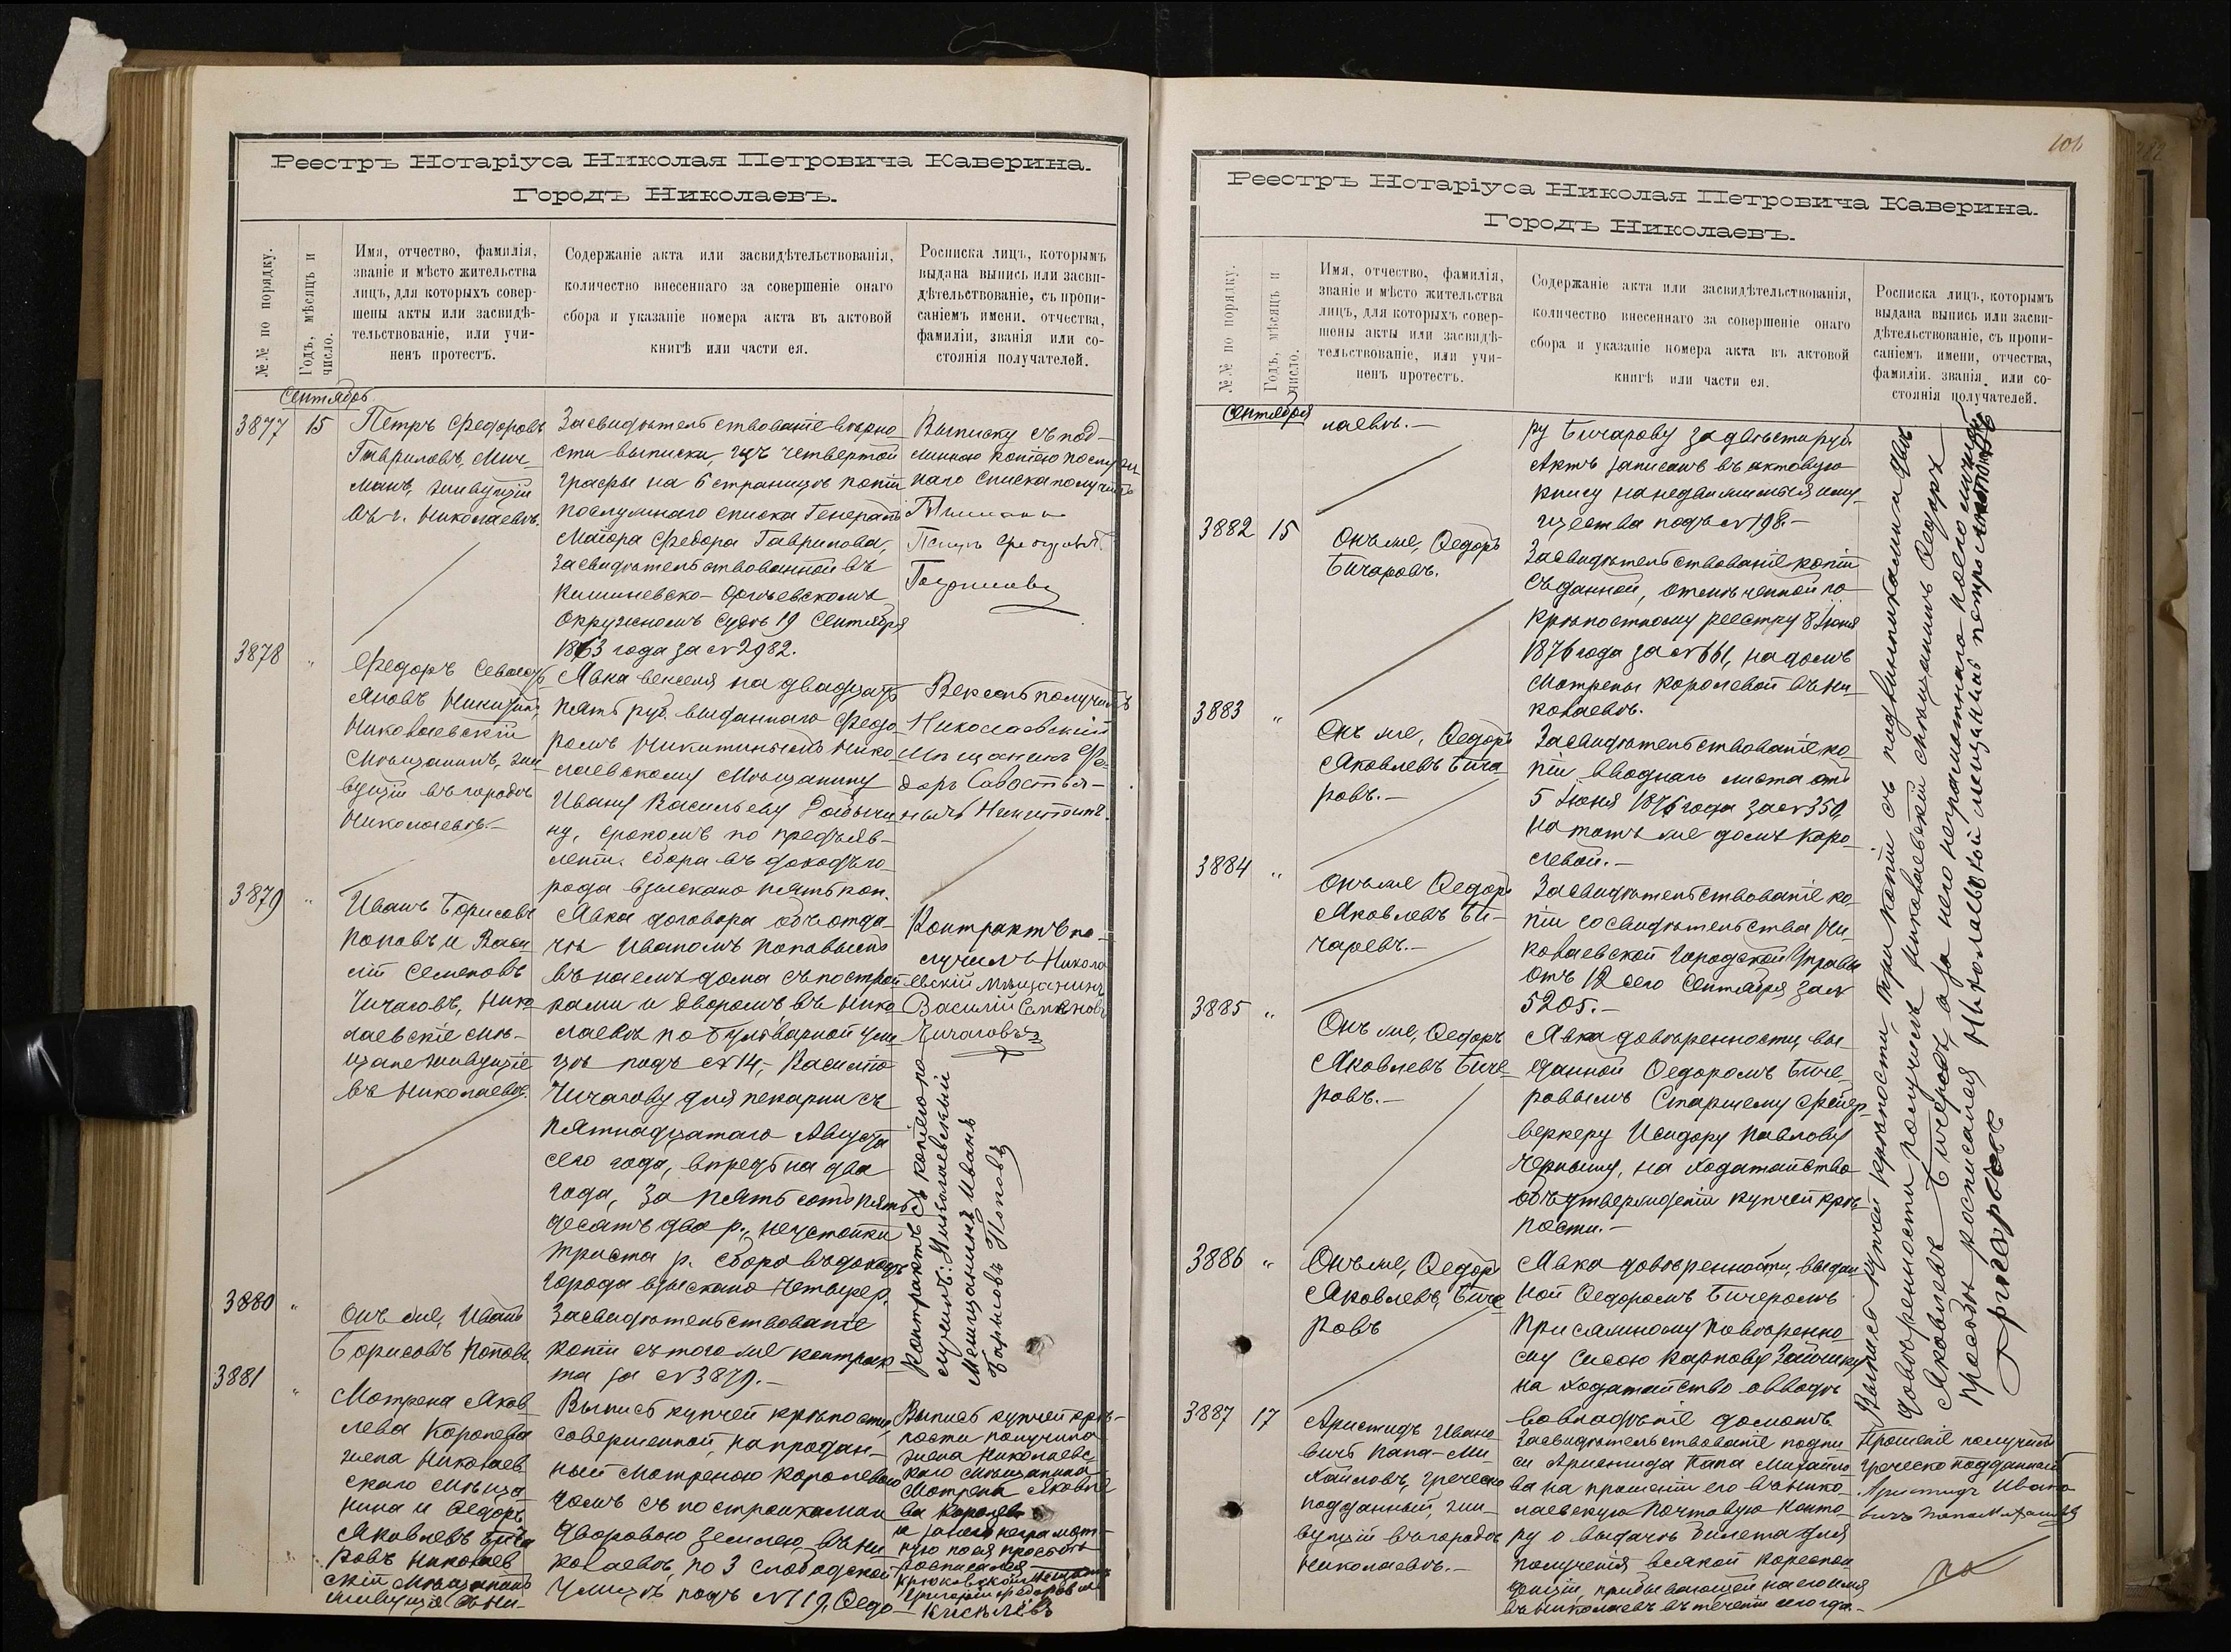 Реестръ Нотаріуса Николая Петровича Каверина.
Городъ Николаевъ.
№№ по порядку.
Годъ, мѣсяцъ и
число.
Имя, отчество, фамилія,
званіе и мѣсто жительства
лицъ, для которыхъ совер-
шены акты или засвидѣ-
тельствованіе, или учи-
ненъ протестъ.
Содержаніе акта или засвидѣтельствованія,
количество внесеннаго за совершеніе онаго
сбора и указаніе номера акта въ актовой
книгѣ или части ея.
Росписка лицъ, которымъ
выдана выпись или засви-
дѣтельствованіе, съ пропи-
саніемъ имени. отчества,
фамиліи, званія или со-
стоянія получателей.
Сентябрь
3877
15
Петръ Федоровъ
Гавриловъ, Мич-
манъ, живущій
въ г. Николаевѣ.
Засвидѣтельствованіе вѣрно-
сти выписки, изъ четвертой
графы на 6 страницѣ копіи
послужнаго списка Генералъ
Маіора Федора Гаврилова,
Засвидѣтельствованной въ
Кишиневско-Оргѣевскомъ
Окружномъ Судѣ 19 Сентября
1863 года за № 2982.
Выписку съ под-
линною копіею послуж
наго списка получилъ
Мичманъ
Петръ Федоровъ
Гавриловъ
3878
"
Федоръ Севасть
яновъ Никитинъ,
Николаевскій
Мѣщанинъ, жи-
вущій въ городѣ
Николаевѣ.-
Явка векселя на двадцать
пять руб. выданнаго Федо
ромъ Никитинымъ Нико
лаевскому Мѣщанину
Ивану Васильеву
ну, срокомъ по предъяв-
леніи. Сбора въ доходъ го-
рода взыскано пять коп.
Вексель получилъ
Николаевскій
Мѣщанинъ Фе-
доръ Савостья-
новъ Никитинъ.
3879
"
Иванъ Борисовъ
Поповъ и Васи
лій Семеновъ
Чичаговъ, Нико
лаевскіе Мѣ-
щане живущіе
въ Николаевѣ.
Явка договора объ отда-
чѣ Иваномъ Поповымъ
въ наемъ дома съ построй
ками и дворомъ въ Нико
лаевѣ по Бульварной ули
цѣ подъ № 14, - Василію
Чичагову для пекарни съ
пятнадцатаго Августа
сего года, впредь на два
года, за пять сотъ пять
десятъ два р., неустойки
триста р. Сбора въ доходъ
города взыскано четыре р.
Контрактъ по-
лучилъ Никола
евскій мѣщанинъ
Василій Семеновъ
Чичаговъ
Контрактъ съ копіею по
лучилъ: Николаевскій
Мещанинъ Иванъ
Борысовъ Поповъ
3880
"
Онъ же, Иванъ
Борисовъ Поповъ
Засвидѣтельствованіе
копіи съ того же контрак
та за № 3879.-
3881
"
Мотрена Яков
лева Королева
жена Николаев
скаго Мѣща
нина и Ѳедоръ
Яковлевъ Бича
ровъ Николаев
скій Мѣщанинъ
живущіе въ Ни-
Выпись купчей крѣпости,
совершенной, на продан-
ный Мотреною Королевою
домъ съ постройками и
дворовою землею, въ Ни
колаевѣ, по 3 Слободской
Улицѣ подъ № 19, Ѳедо-
Выпись купчей крѣ-
пости получила
жена Николаевс
каго Мѣщанина
Мотрена Яковле
ва Королева
а за нею неграмот-
ную по ея просьбѣ
росписался
Крюковскій мещанинъ
Григорій Федоровъ
Киселевъ
101
Реестръ Нотаріуса Николая Петровича Каверина.
Городъ Николаевъ.
№№ по порядку.
Годъ, мѣсяцъ и
число.
Имя, отчество, фамилія,
званіе и мѣсто жительства
лицъ, для которыхъ совер-
шены акты или засвидѣ-
тельствованіе, или учи-
ненъ протестъ.
Содержаніе акта или засвидѣтельствованія,
количество внесеннаго за совершеніе онаго
сбора и указаніе номера акта въ актовой
книгѣ или части ея.
Росписка лицъ, которымъ
выдана выпись или засви-
дѣтельствованіе, съ пропи-
саніемъ имени, отчества,
фамиліи. званія или со-
стоянія получателей.
Сентября
лаевѣ.-
ру Бичарову за двѣсти руб.
Актъ записанъ въ актовую
книгу на недвижимыя иму-
щества подъ № 198.-
3882
15
Онъ же, Ѳедоръ
Бичаровъ.
Засвидѣтельствованіе копіи
съ данной, отмѣченной по
крѣпостному реестру 8 Іюня
1876 года за № 661, на домъ
Мотрены Королевой въ Ни-
колаевѣ.
3883
"
Онъ же, Ѳедоръ
Яковлевъ Бича
ровъ.-
Засвидѣтельствованіе ко
піи вводнаго листа отъ
5 Іюня 1876 года за № 350,
на тотъ же домъ Коро-
левой.-
3884
"
Онъ же Ѳедоръ
Яковлевъ Би-
чаревъ.-
Засвидѣтельствованіе ко-
піи со свидѣтельства Ни-
колаевской Городской Управы
отъ 12 сего Сентября за №
5205.-
3885
"
Онъ же, Ѳедоръ
Яковлевъ Биче-
ровъ.-
Явка довѣренности, вы-
данной Ѳедоромъ Биче-
ровымъ Старшему Фейер-
веркеру Исидору Павлову
Черныку, на ходатайство
объ утвержденіи купчей крѣ-
пости.-
3886
"
Онъ же, Ѳедоръ
Яковлевъ, Биче
ровъ
Явка довѣренности, выдан
ной Ѳедоромъ Бичеромъ
Присяжному Повѣренно
му Сысою Карпову Зайчику
на ходатайство о вводѣ
во владѣніе домомъ.
Выпись купчей крѣпости, три копіи съ подлинниками и двѣ
довѣренности получилъ Николаевскій мѣщанинъ Ѳедоръ
Яковлевъ Бичеровъ, а за него неграмотнаго по его личной
просьбѣ росписался Николаевскій мещанинъ Петро
3887
17
Аристидъ Ивано
вичъ Папа-Ми-
хайловъ, греческо
подданный, жи-
вущій въ городѣ
Николаевѣ.-
Засвидѣтельствованіе подпи-
си Аристида Папа Михайло
ва на прошеніи его въ Нико-
лаевскую Почтовую Конто-
ру о выдачѣ билета для
полученія всякой кореспон
денціи, прибывающей на его имя
въ Николаевъ въ теченіи сего года-
Прошеніе получилъ
греческо подданный
Аристидъ Ивано
вичъ ПапаМихайловъ